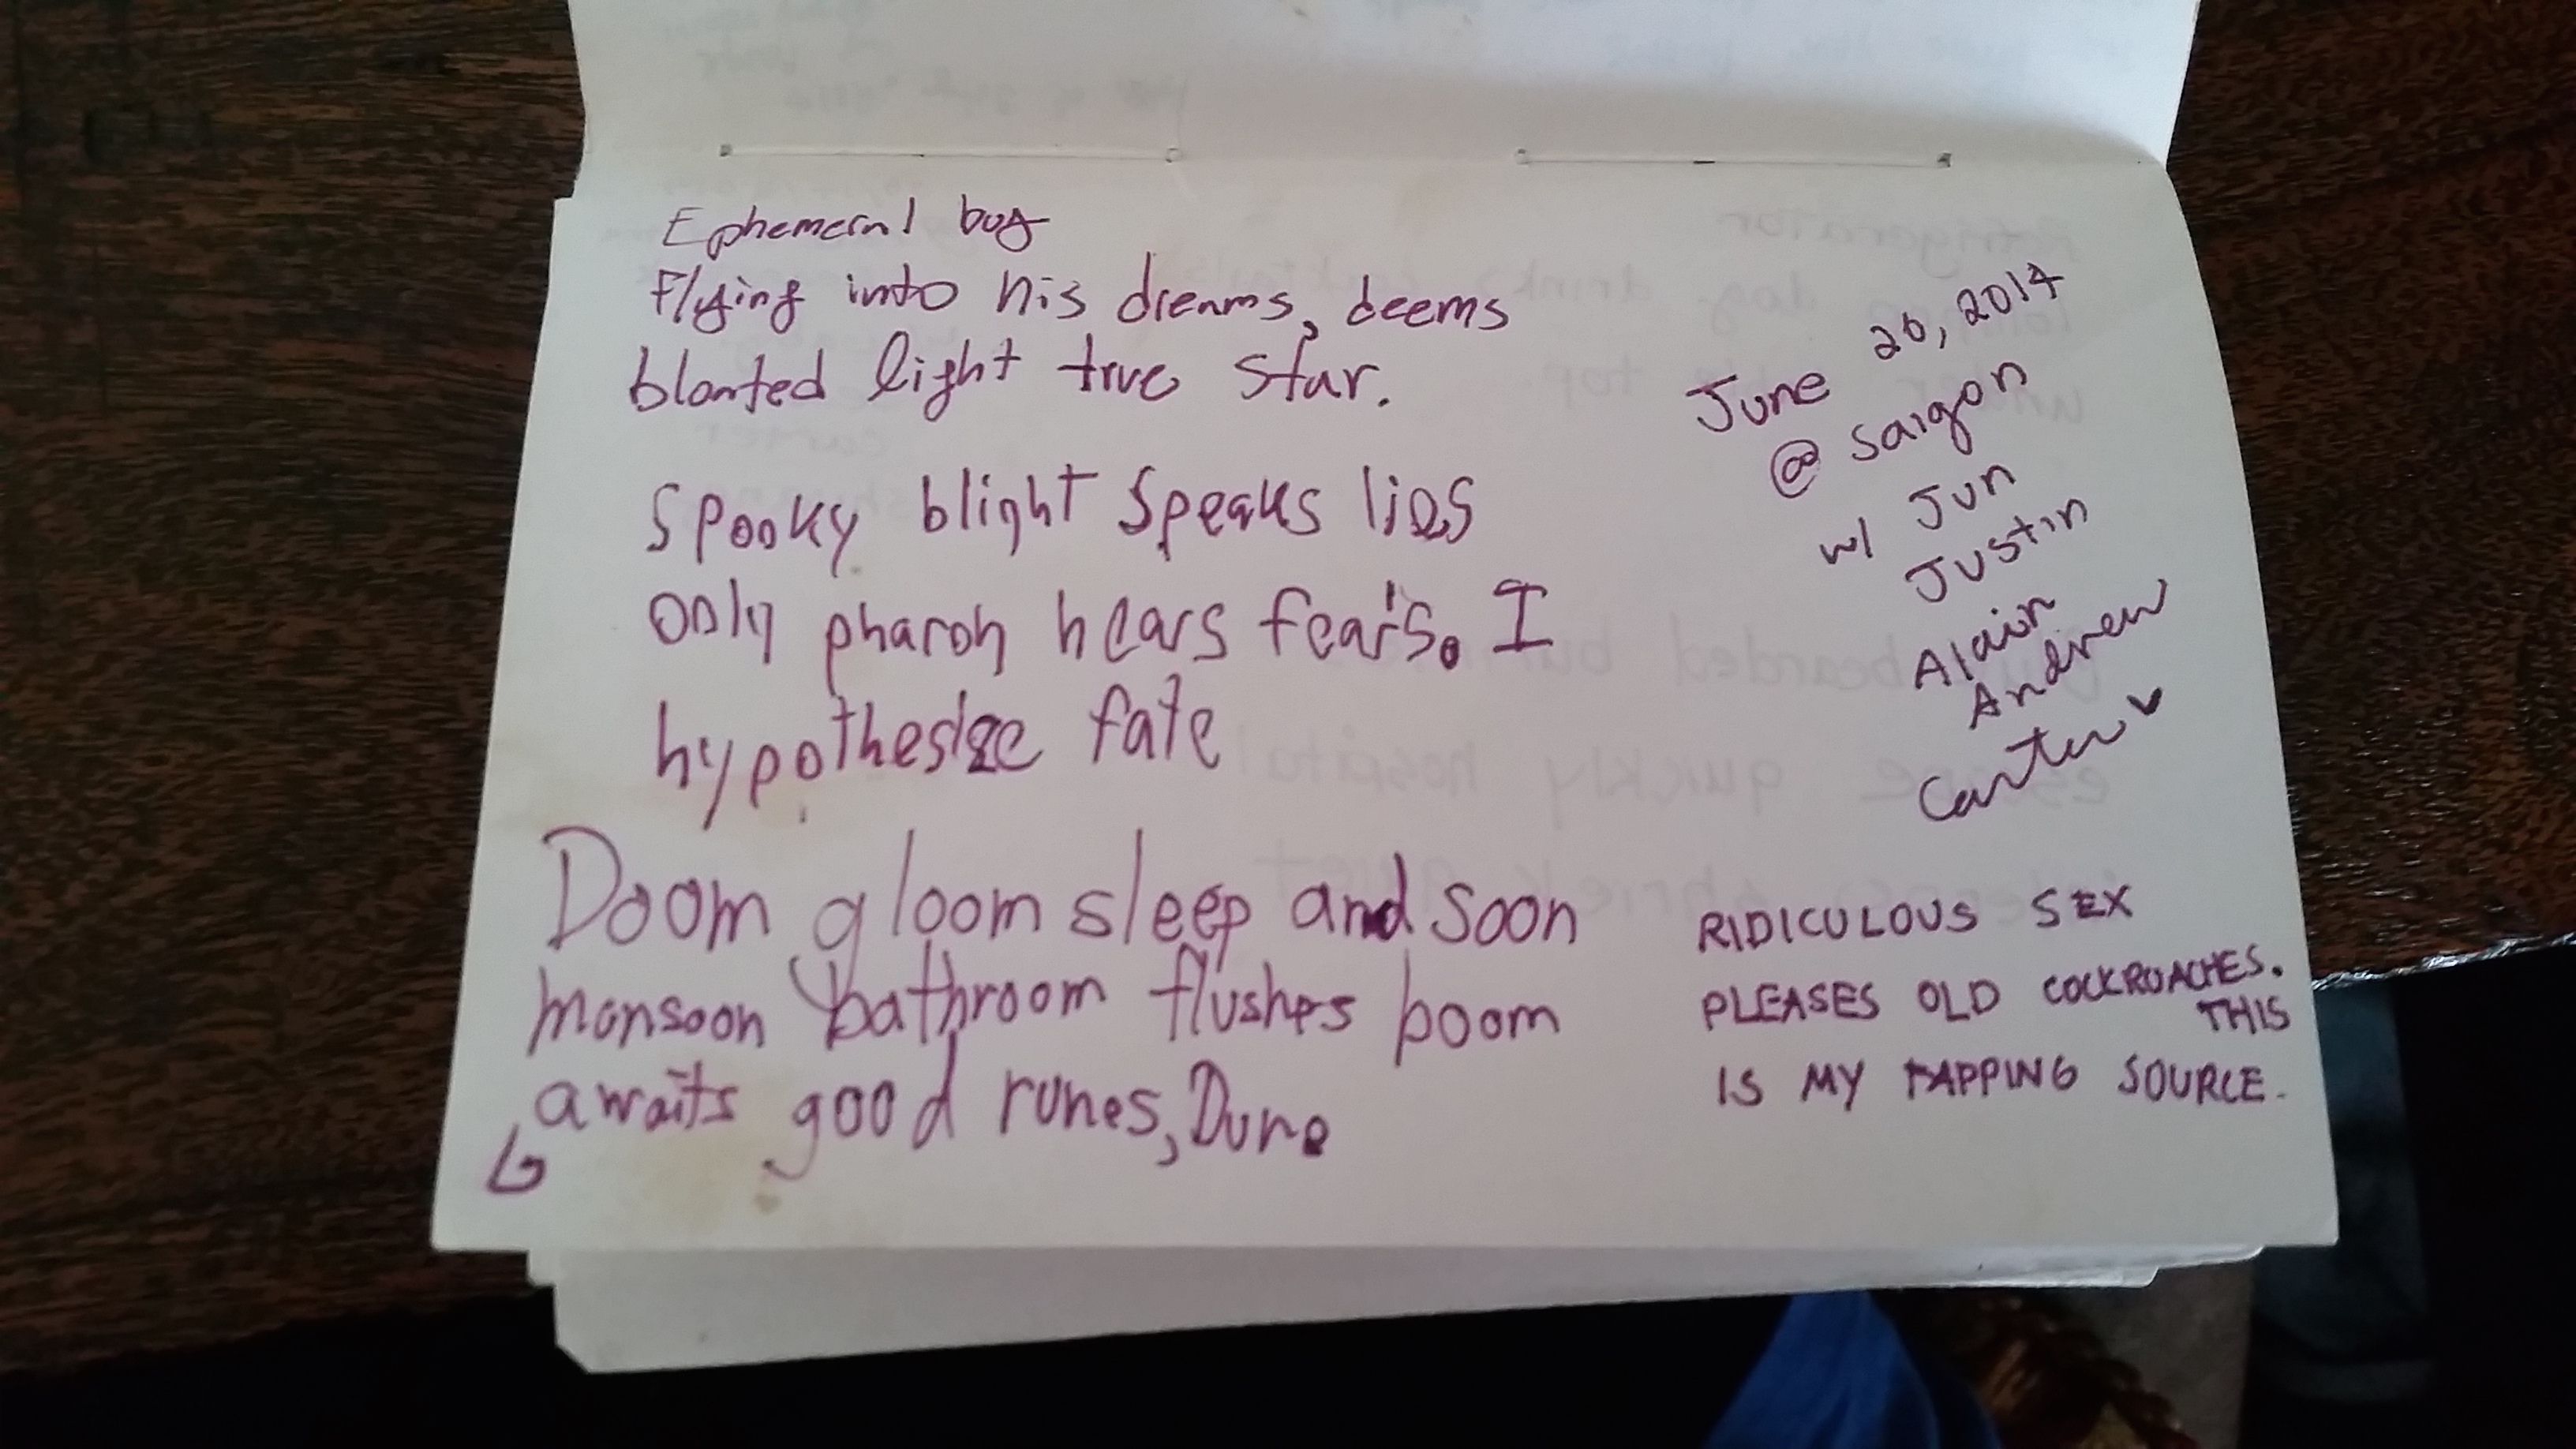 Ephemeral bug
Flying into his dreams, deems
bloated light true star.
Spooky blight speaks lies
only pharoh hears fears. I
hypothesize fate
Doom gloom sleep and soon
monsoon bathroom flushes boom
awaits good runes, Dune
June 20, 2014
@ Saigon
w/ Jun
Justin
Alain
Andrew
Carter
RIDICULOUS SEX
PLEASES OLD COCKROACHES.
THIS
IS MY TAPPING SOURCE.